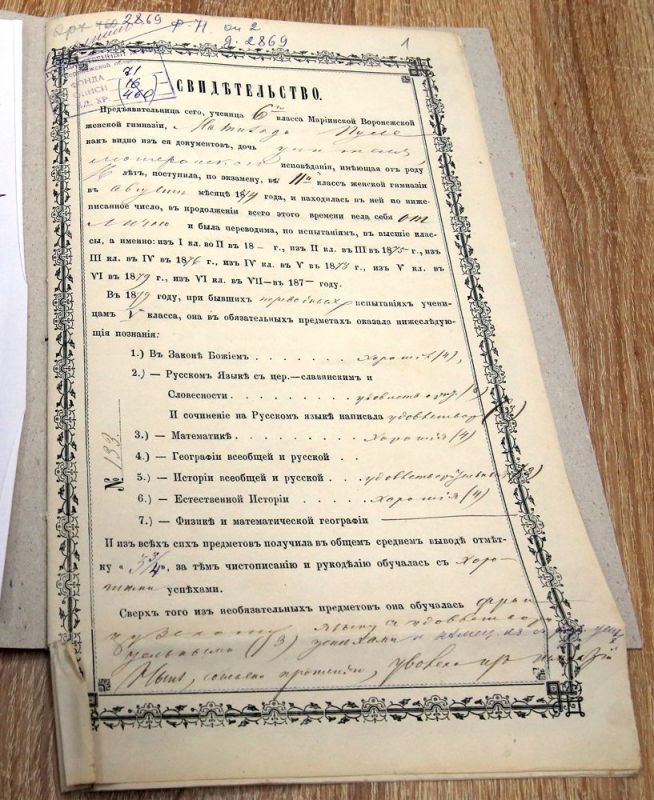 2869 Ф-Н оп 2
д. 2869 1
ФОНДА 71
ОПИСИ 16
ЕД. ХР. 400
СВИДѢТЕЛЬСТВО.
Предъявительница сего, ученица 6го класса Маріинской Воронежской
женской гимназіи,
какъ видно изъ ея документовъ, дочь
исповѣданія, имѣющая отъ роду
лѣтъ, поступила, по экзамену, въ II классъ женской гимназіи
въ Августѣ мѣсяцѣ 1874 года, и находилась въ ней по ниже-
писанное число, въ продолженіи всего этого времени вела себя от
лично и была переводима, по испытаніямъ, въ высшіе клас-
сы, а именно: изъ I кл. во II въ 18 — г., изъ II кл. въ III въ 1875 г., изъ
III кл. въ IV въ 1876 г., изъ IV кл. въ V въ 1878 г., изъ V кл. въ
VI въ 1879 г., изъ VI кл. въ VII — въ 187- году.
Въ 1879 году, при бывшихъ переводныхъ испытаніяхъ учени-
цамъ V класса, она въ обязательныхъ предметахъ оказала нижеслѣдую-
щія познанія:
1.) Въ Законѣ Божіемъ . . . . . . . хорошія (4),
2.) — Русскомъ Языкѣ съ цер.—славанскимъ и
Словесности . . . . . . . . удовлетвор (3)
И сочиненіе на Русскомъ языкѣ написала удовлетвор
3.) — Математикѣ . . . . . . . . хорошія (4)
4.) — Географіи всеобщей и русской . .
5.) — Исторіи всеобщей и русской . . . удовлетворительныя (3)
6.) — Естественной Исторіи . . . . . хорошія (4)
7.) — Физикѣ и математической географіи
№ 133
И изъ всѣхъ сихъ предметовъ получила въ общемъ среднемъ выводѣ отмѣт-
ку „3 3/4", за тѣмъ чистописанію и рукодѣлію обучалась съ хоро-
шими успѣхами.
Сверхъ того изъ необязательныхъ предметовъ она обучалась фран
цузскому языку съ удовлетвори
тельными (3) успѣхами и
Нынѣ, согласно прошенію, уволена изъ гимназіи